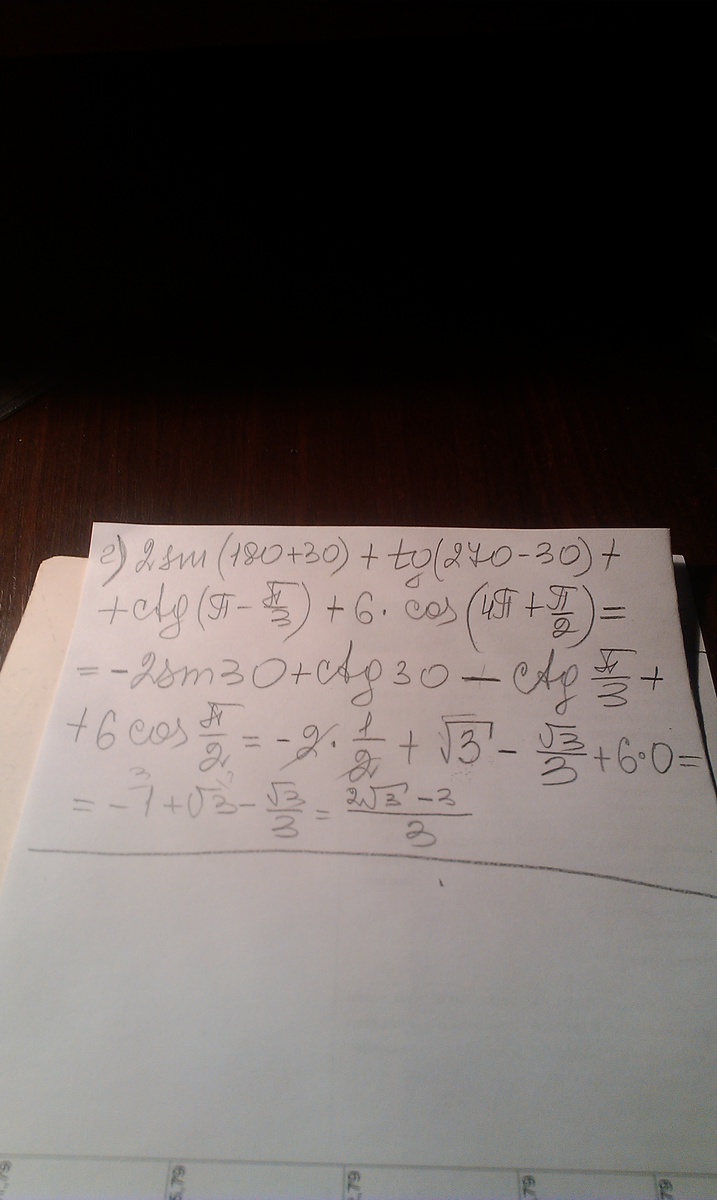 г) 2sin(180+30) + tg(270-30) +
+ ctg(π - π/3) + 6 · cos(4π + π/2) =
= -2sin30 + ctg30 - ctg π/3 +
+ 6 cos π/2 = -2 · 1/2 + √3 - √3/3 + 6·0 =
= -1 + √3 - √3/3 = (2√3 - 3)/3
5,79
,79
,79
,79